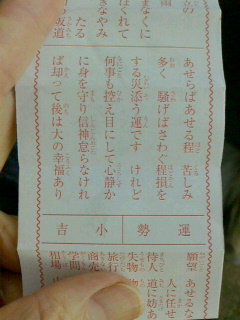 あせらばあせる程 苦しみ
多く 騒げばさわぐ程損を
する災添う運です けれど
何事も控え目にして心静か
に身を守り信神怠らなけれ
ば却って後は大の幸福あり
運勢
小吉
願望
あせるな
人に任せ
待人
道に妨あ
失物
旅行
商売
学問
相場
国
まなくに
はれて
きなやみ
たる
坂道